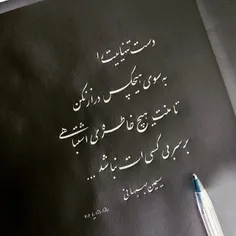 دست تنهاییت را
به سوی هیچکس دراز نکن
تا منت هیچ خاطره ی اشتباهی
بر سر بی کسی ات نباشد ...
سیمین بهبهانی